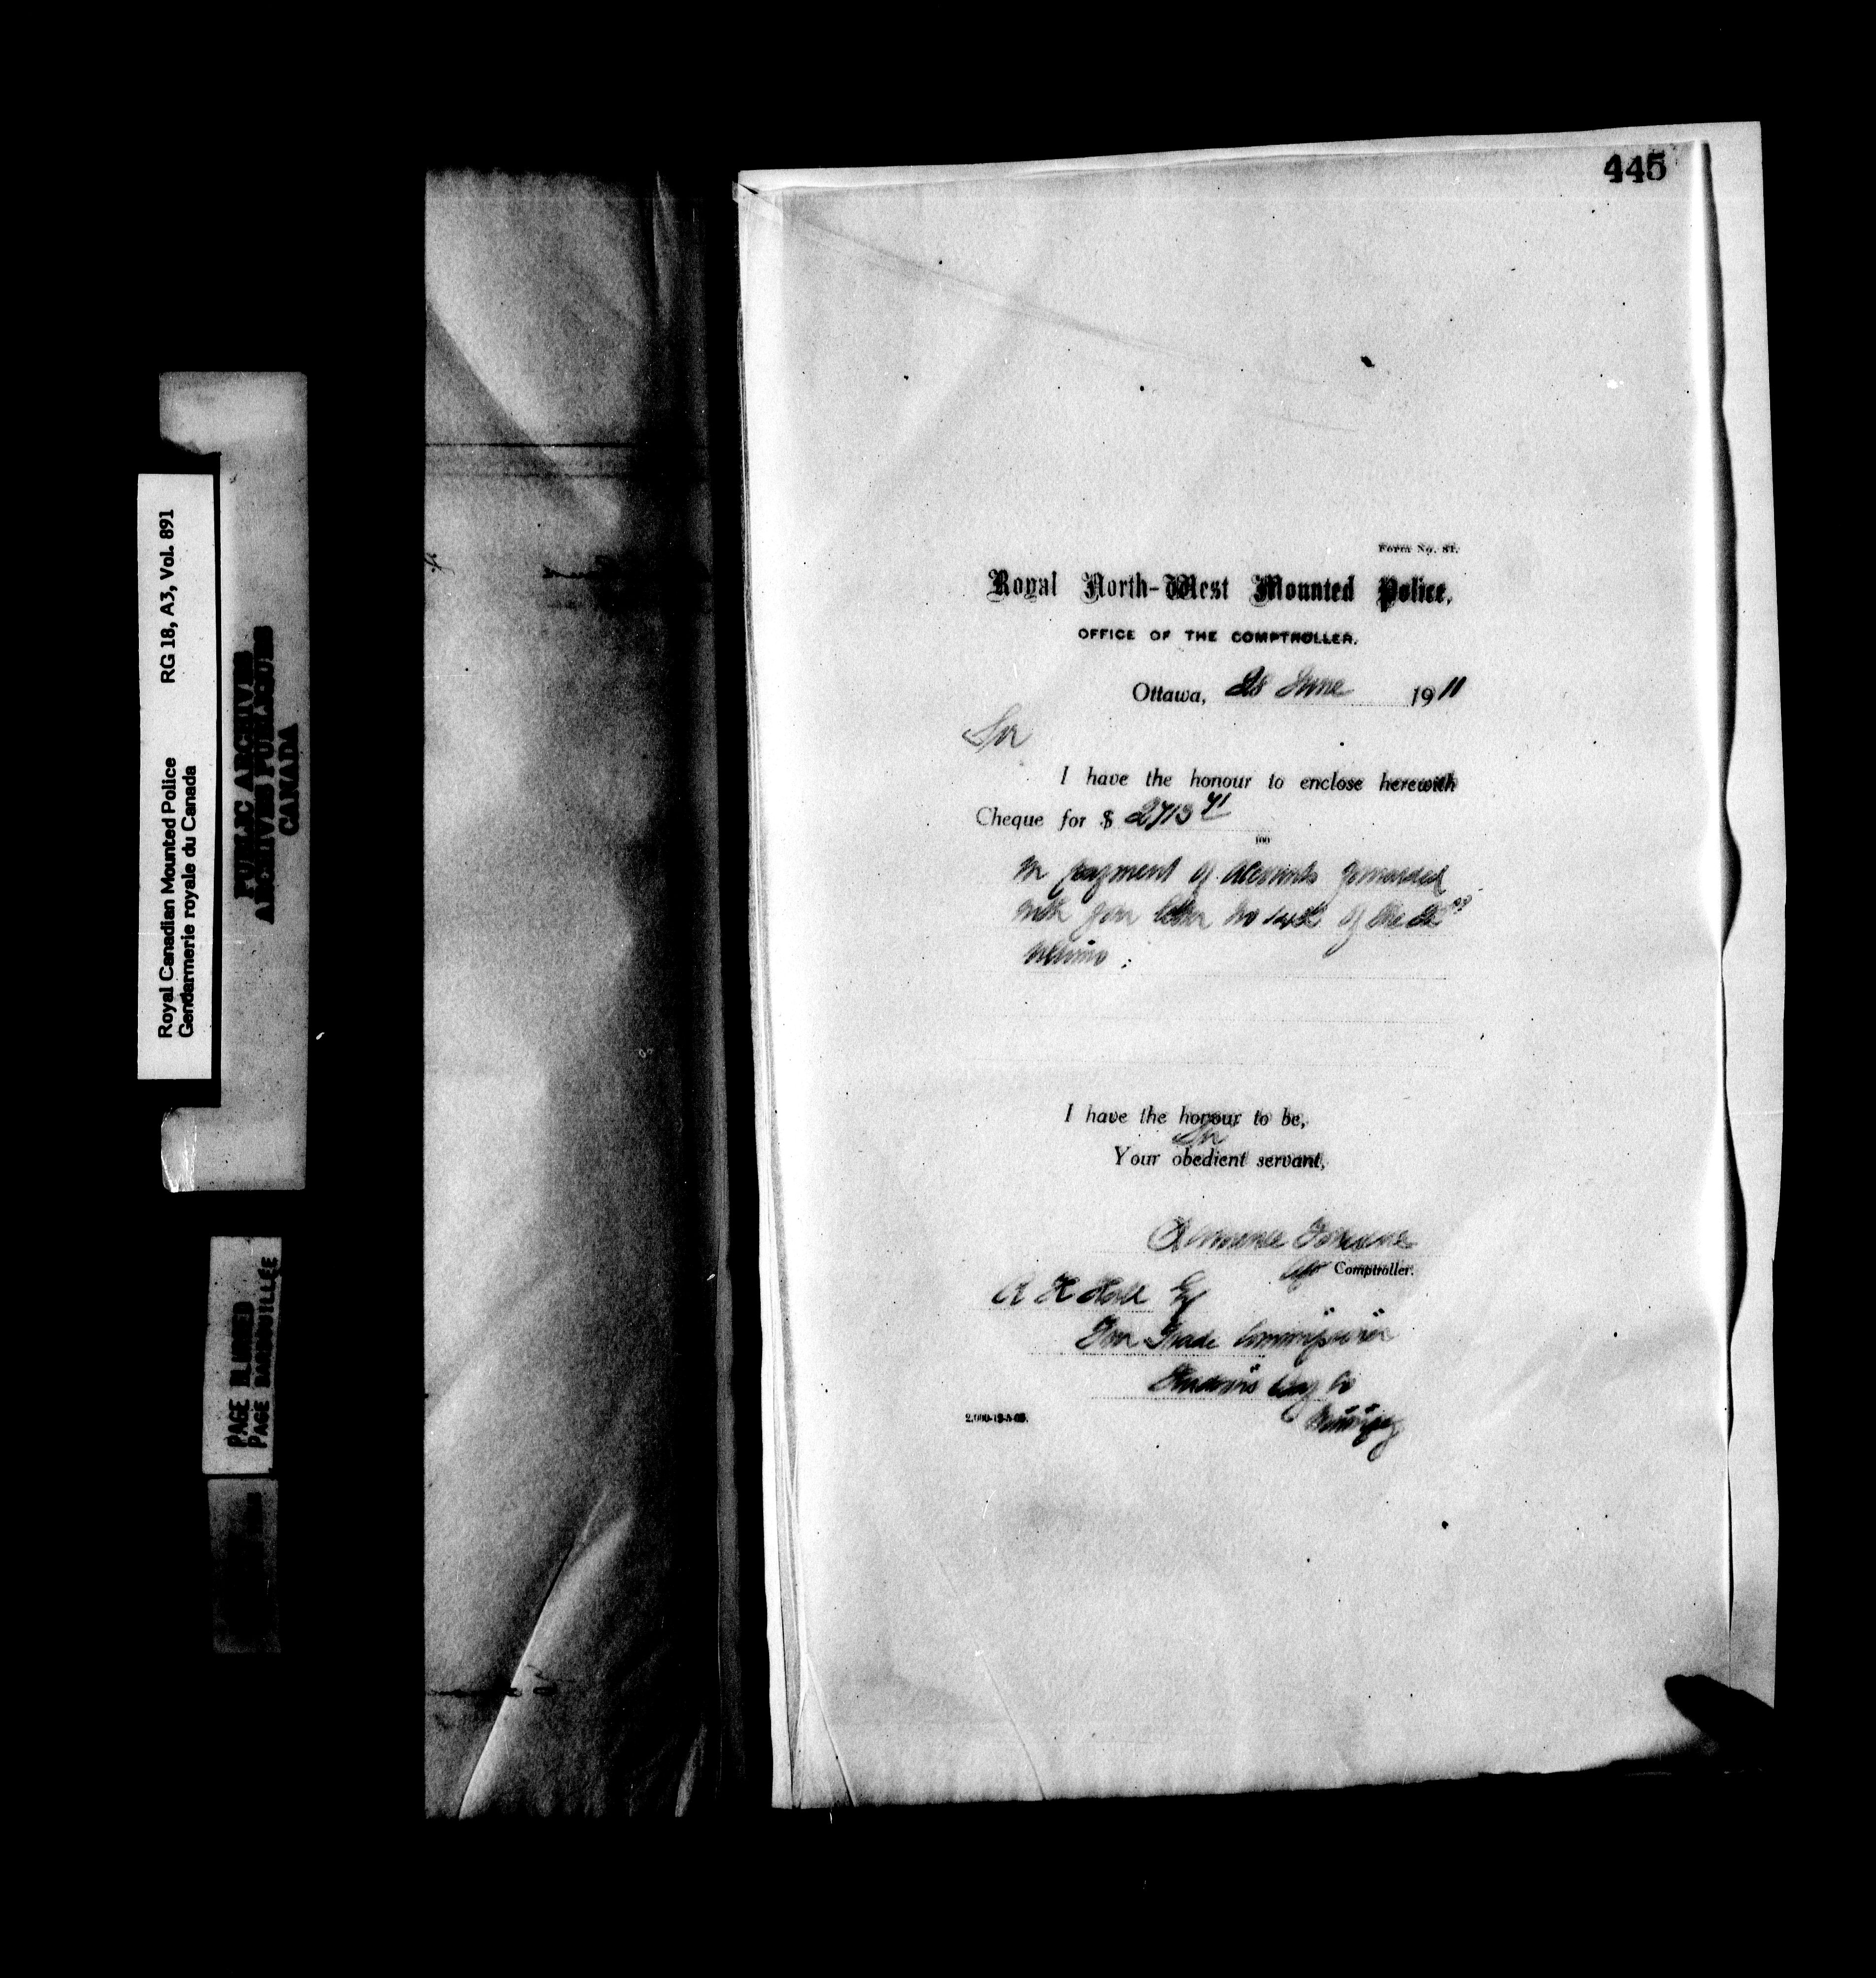 445
Form No. 81.
Royal North-West Mounted Police.
OFFICE OF THE COMPTROLLER.
Ottawa, 28 June 1911
Sir
I have the honour to enclose herewith
Cheque for $ 2713 71
100
in payment of accounts forwarded
with your letter No of the
ultimo:
I have the honour to be,
Sir
Your obedient servant,
Comptroller.
A K Hall Esq
Fur Trade Commissioner
Hudson's Bay Co
Winnipeg
Royal Canadian Mounted Police RG 18, A3, Vol. 891
Gendarmerie royale du Canada
PUBLIC ARCHIVES
ARCHIVES PUBLIQUES
CANADA
PAGE BLURRED
PAGE BARBOUILLÉE